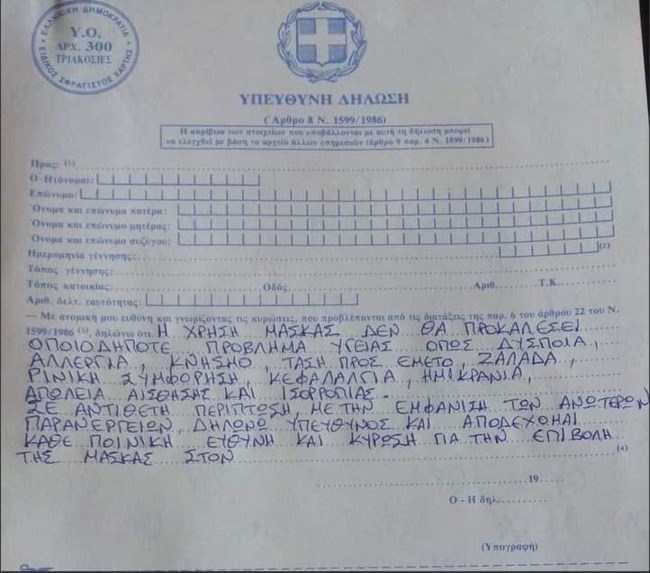 ΕΛΛΗΝΙΚΗ ΔΗΜΟΚΡΑΤΙΑ
Υ.Ο.
ΔΡΧ. 300
ΤΡΙΑΚΟΣΙΕΣ
ΕΙΔΙΚΟΣ ΣΦΡΑΓΙΣΤΟΣ ΧΑΡΤΗΣ
ΥΠΕΥΘΥΝΗ ΔΗΛΩΣΗ
(Άρθρο 8 Ν. 1599/1986)
Η ακρίβεια των στοιχείων που υποβάλλονται με αυτή τη δήλωση μπορεί
να ελεγχθεί με βάση το αρχείο άλλων υπηρεσιών (άρθρο 8 παρ. 4 Ν. 1599/1986)
Προς: (1)
Ο-Η (όνομα):
Επώνυμο:
Όνομα και επώνυμο πατέρα:
Όνομα και επώνυμο μητέρας:
Όνομα και επώνυμο συζύγου:
Ημερομηνία γέννησης: (2)
Τόπος γέννησης:
Τόπος κατοικίας: Οδός: Αριθ. Τ.Κ.
Αριθ. δελτ. ταυτότητας:
— Με ατομική μου ευθύνη και γνωρίζοντας τις κυρώσεις, που προβλέπονται από τις διατάξεις της παρ. 6 του άρθρου 22 του Ν.
1599/1986 (3), δηλώνω ότι: Η ΧΡΗΣΗ ΜΑΣΚΑΣ ΔΕΝ ΘΑ ΠΡΟΚΑΛΕΣΕΙ
ΟΠΟΙΟΔΗΠΟΤΕ ΠΡΟΒΛΗΜΑ ΥΓΕΙΑΣ ΟΠΩΣ ΔΥΣΠΟΙΑ,
ΑΛΛΕΡΓΙΑ, ΚΝΗΣΜΟ, ΤΑΣΗ ΠΡΟΣ ΕΜΕΤΟ, ΖΑΛΑΔΑ,
ΡΙΝΙΚΗ ΣΥΜΦΟΡΗΣΗ, ΚΕΦΑΛΑΛΓΙΑ, ΗΜΙΚΡΑΝΙΑ,
ΑΠΩΛΕΙΑ ΑΙΣΘΗΣΗΣ ΚΑΙ ΙΣΟΡΡΟΠΙΑΣ.
ΣΕ ΑΝΤΙΘΕΤΗ ΠΕΡΙΠΤΩΣΗ, ΜΕ ΤΗΝ ΕΜΦΑΝΙΣΗ ΤΩΝ ΑΝΩΤΕΡΩΝ
ΠΑΡΑΝΕΡΓΕΙΩΝ, ΔΗΛΩΝΩ ΥΠΕΥΘΥΝΟΣ ΚΑΙ ΑΠΟΔΕΧΟΜΑΙ
ΚΑΘΕ ΠΟΙΝΙΚΗ ΕΥΘΥΝΗ ΚΑΙ ΚΥΡΩΣΗ ΓΙΑ ΤΗΝ ΕΠΙΒΟΛΗ
ΤΗΣ ΜΑΣΚΑΣ ΣΤΟΝ (4)
19
Ο - Η δηλ.
(Υπογραφή)